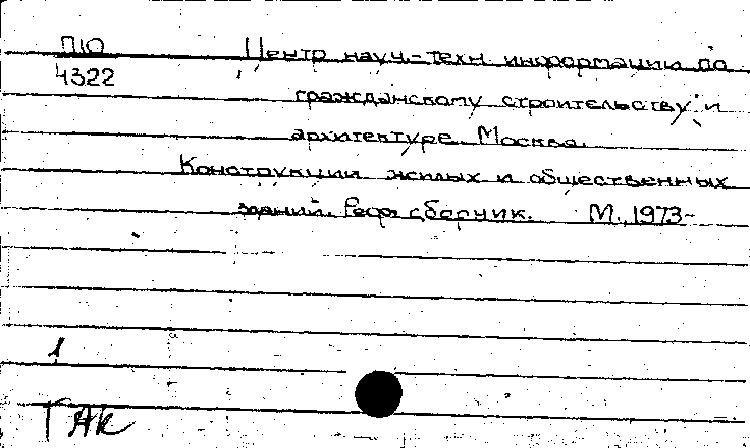 П10 Центр науч-техн информации по
4322
гражданскому строительству и
архитектуре. Москва.
Конструкции жилых и общественных
зданий. Реф. сборник. М., 1973-
1
ГАК